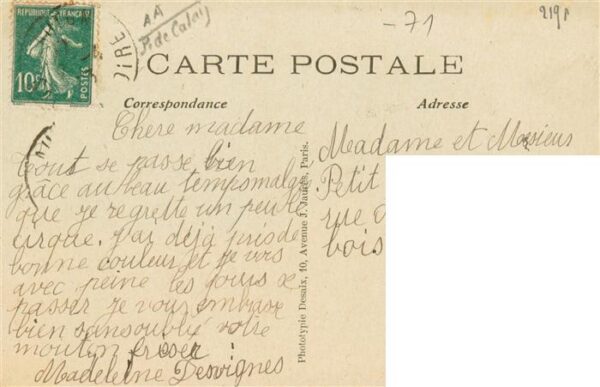 REPUBLIQUE FRANÇAISE
10c
POSTES
AA
P. de Calais
-71
CARTE POSTALE
Correspondance
Adresse
Chere madame
Tout se passe bien
grâce au beau temps malgr
que je regrette un peu le
cirque. j'ai déjà pris de
bonne couleur et je vois
avec peine les jours se
passer je vous embrasse
bien sans oublié votre
mouton friser
Madeleine Desvignes
Madame et Mosieur
Petit
rue
bois
Phototypie Desaix, 10, Avenue J. Jaurès, Paris.